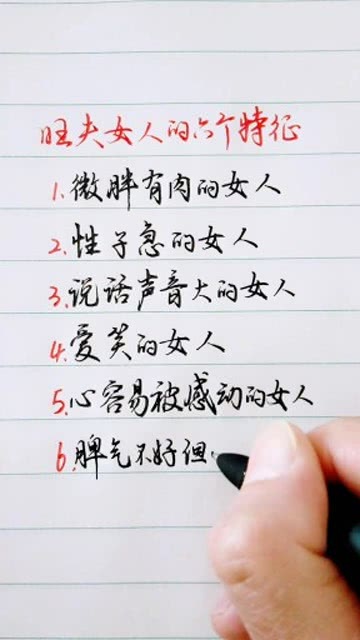 旺夫女人的六个特征
1.微胖有肉的女人
2.性子急的女人
3.说话声音大的女人
4.爱笑的女人
5.心容易被感动的女人
6.脾气不好但